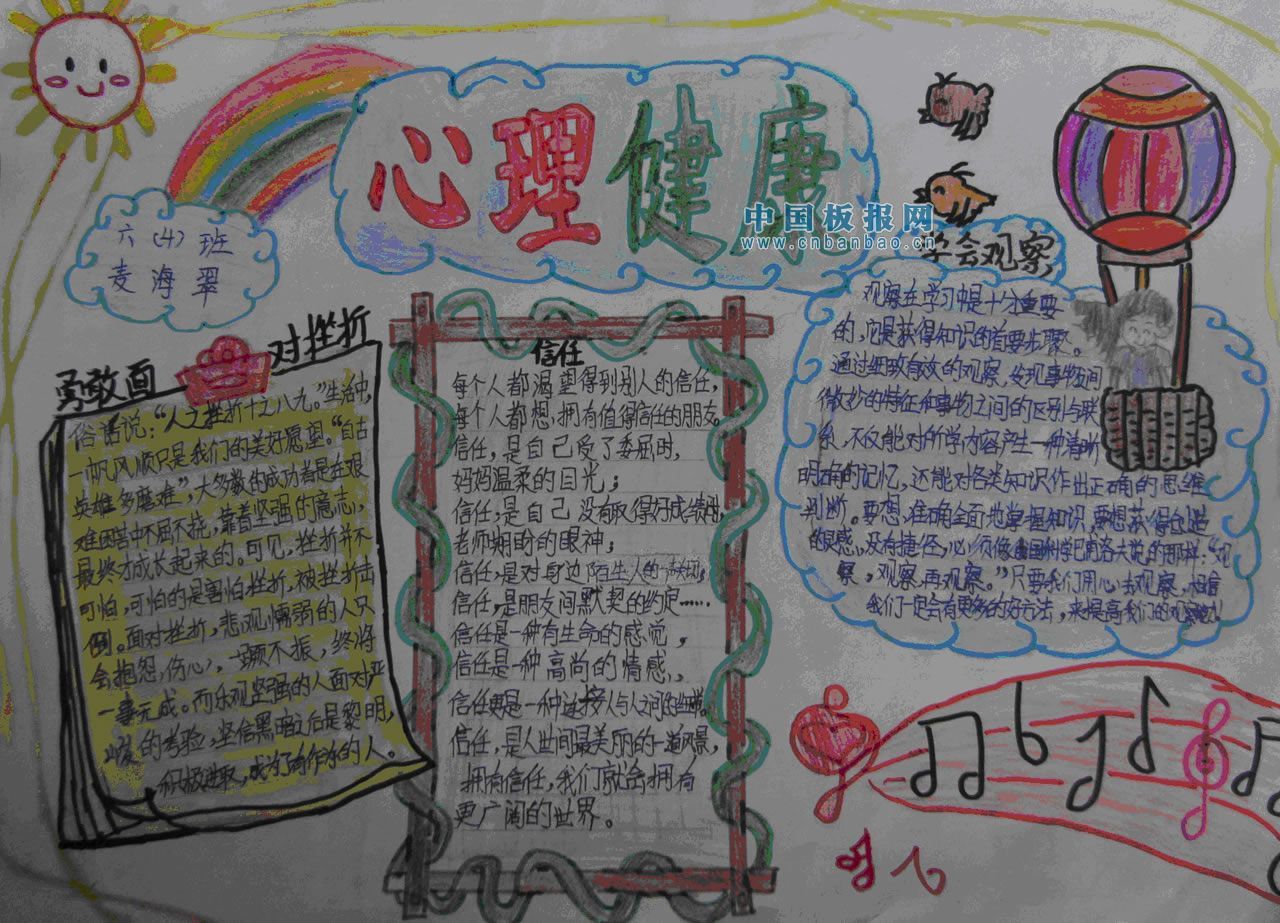 心理健康
中国板报网
www.cnbanbao.cn
六(4)班
麦海翠
勇敢面对挫折
俗话说:“人之挫折十之八九。”生活中,
一帆风顺只是我们的美好愿望。“自古
英雄多磨难”,大多数的成功者是在艰
难困苦中不屈不挠,靠着坚强的意志,
最终才成长起来的。可见,挫折并不
可怕,可怕的是害怕挫折,被挫折击
倒。面对挫折,悲观懦弱的人只
会抱怨,伤心,一蹶不振,终将
一事无成。而乐观坚强的人面对严
峻的考验,坚信黑暗之后是黎明,
积极进取,成为有作为的人。
信任
每个人都渴望得到别人的信任,
每个人都想,拥有值得信任的朋友。
信任,是自己受了委屈时,
妈妈温柔的目光;
信任,是自己没有取得好成绩时,
老师期盼的眼神;
信任,是对身边陌生人的一声关切;
信任,是朋友间默契的约定……
信任是一种有生命的感觉,
信任是一种高尚的情感,
信任更是一种连接人与人之间的
信任,是人世间最美丽的一道风景,
拥有信任,我们就会拥有
更广阔的世界。
学会观察
观察在学习中是十分重要
的,它是获得知识的首要步骤。
通过细致有效的观察,发现事物间
微妙的特征和事物之间的区别与联
系,不仅能对所学内容产生一种清晰
明确的记忆,还能对各类知识作出正确的思维
判断。要想准确全面地掌握知识,要想获得创造
的灵感,没有捷径,必须像 说的那样:“观
察,观察,再观察。”只要我们用心去观察,相信
我们一定会有更多的好方法,来提高我们的观察能力!